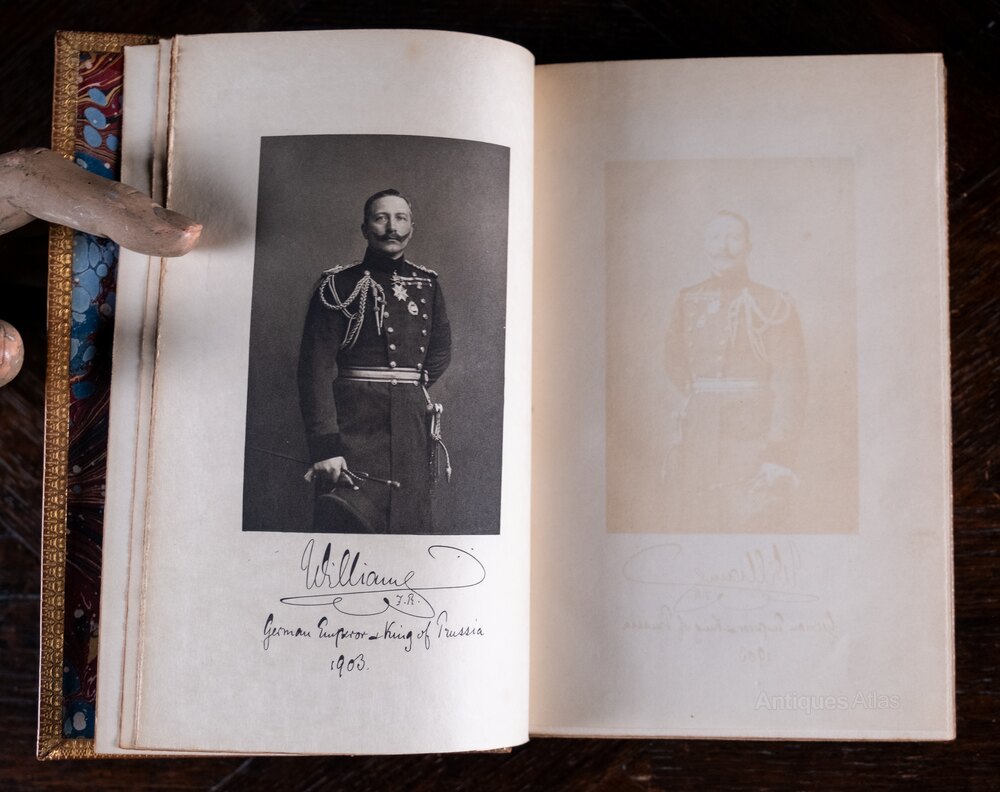 William
I.R.
German Emperor & King of Prussia
1903.
Antiques Atlas